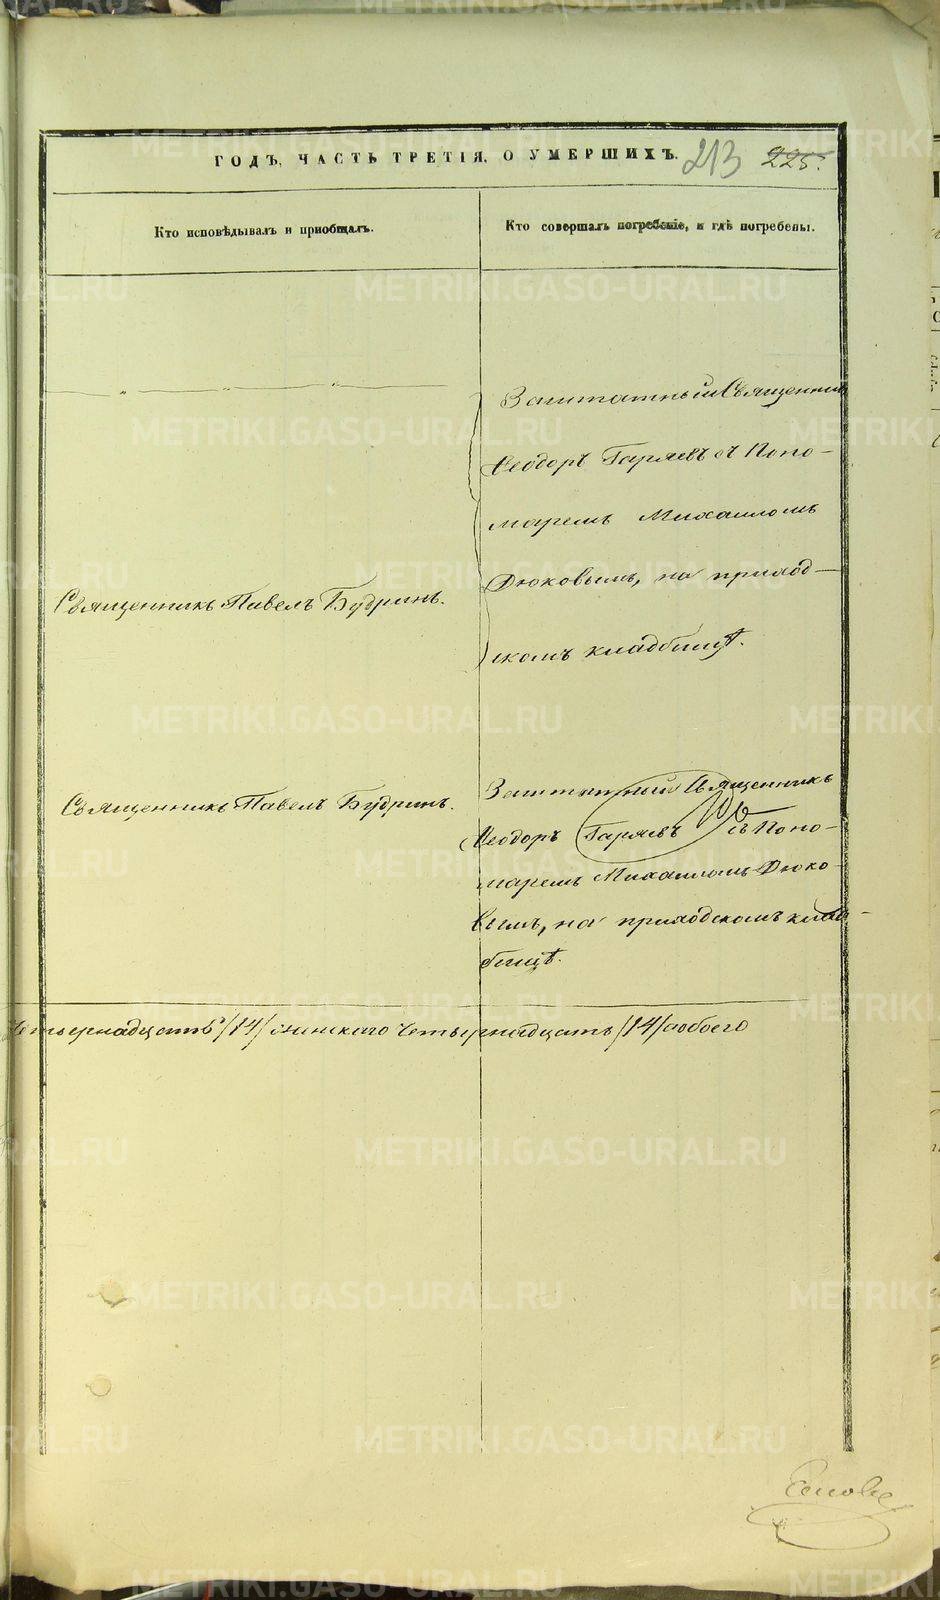 ГОДЪ, ЧАСТЬ ТРЕТІЯ, О УМЕРШИХЪ. 213 225.
Кто исповѣдывалъ и приобщалъ.
Кто совершалъ погребеніе, и гдѣ погребены.
Заштатный Священникъ
Ѳеодоръ Гаряевъ съ Поно-
маремъ Михаиломъ
Дюковымъ, на приход-
скомъ кладбищѣ.
Священникъ Павелъ Будринъ.
Священникъ Павелъ Будринъ.
Заштатный Священникъ
Ѳеодоръ Гаряевъ съ Поно-
маремъ Михаиломъ Дюко-
вымъ, на приходскомъ клад-
бищѣ.
четырнадцать /14/ женскаго четырнадцать /14/ обоего
METRIKI.GASO-URAL.RU